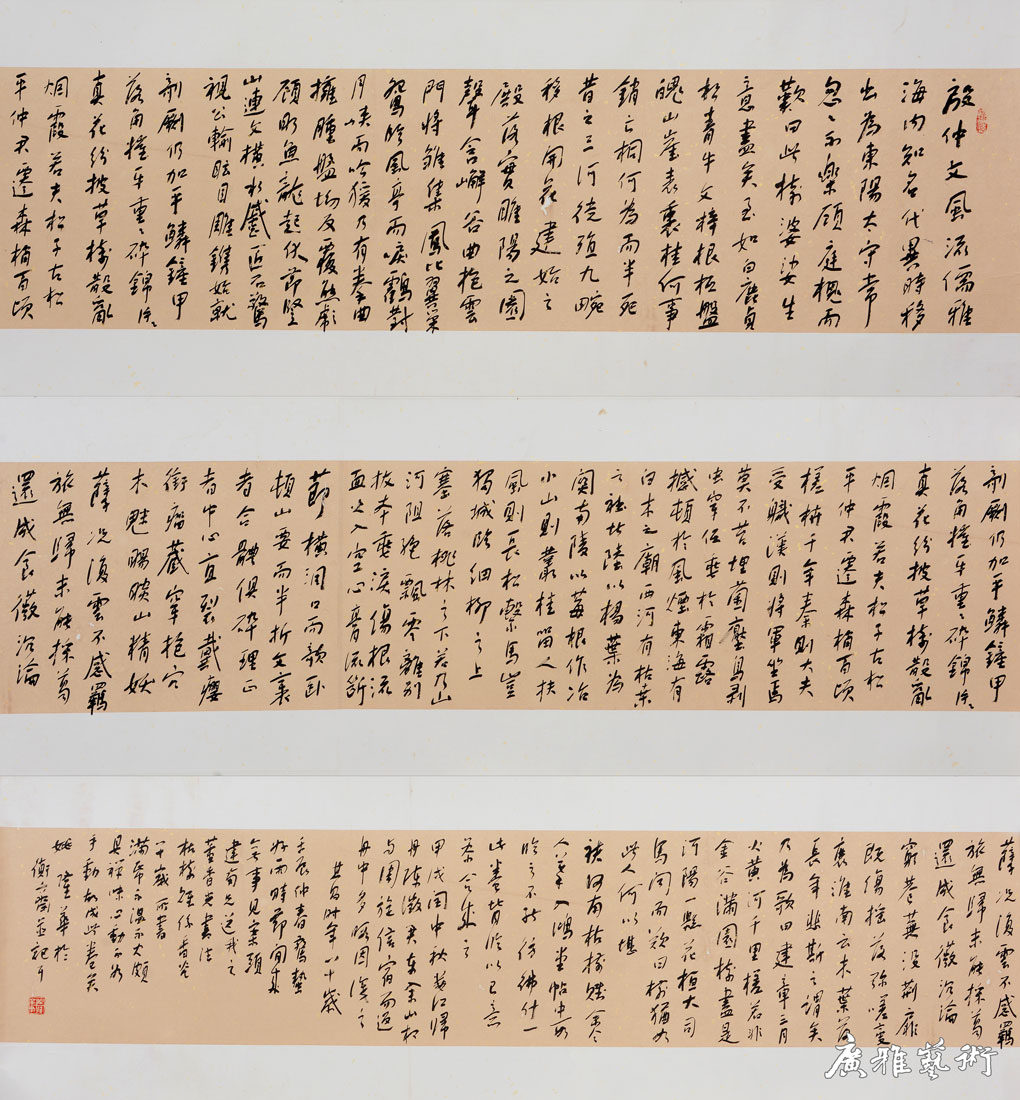 殷仲文風流儒雅
海內知名代異時移
出為東陽太守常
忽忽不樂顧庭槐而
歎曰此樹婆娑生
意盡矣至如白鹿貞
松青牛文梓根柢盤
魄山崖表裏桂何事
銷亡桐何為而半死
昔之三河徙殖九畹
移根開花建始之
殿落實睢陽之園
聲含嶰谷曲抱雲
門將雛集鳳比翼巢
鴛臨風亭而唳鶴對
月峽而吟猨乃有拳曲
擁腫盤坳反覆熊彪
顧盼魚龍起伏節竪
山連文橫水蹙匠石驚
視公輸眩目雕鐫始就
剞劂仍加平鱗鏟甲
落角摧牙重重碎錦片片
真花紛披草樹散亂
烟霞若夫松子古松
平仲君遷森梢百頃
剞劂仍加平鱗鏟甲
落角摧牙重重碎錦片片
真花紛披草樹散亂
烟霞若夫松子古松
平仲君遷森梢百頃
槎枿千年秦則大夫
受職漢則將軍坐焉
莫不苔埋菌壓鳥剥
虫穿低垂於霜露
撼頓於風煙東海有
白木之廟西河有枯桑
之社北陸以楊葉為
關南陵以莓根作冶
小山則叢桂留人扶
風則長松繫馬豈
獨城臨細柳之上
塞落桃林之下若乃山
河阻絕飄零離別
拔本垂淚傷根流
血火入空心膏流斷
節橫洞口而敧臥
頓山要而半折文裏
者合體俱碎理正
者中心直裂戴癭
銜瘤藏穿抱穴
木魅睗睒山精妖
孽況復雲不感羈
旅無歸未能採葛
還成食薇沉淪
孽況復雲不感羈
旅無歸未能採葛
還成食薇沉淪
窮巷蕪没荆扉
既傷搖落彌嗟變
衰淮南云木葉落
長年悲斯之謂矣
乃為歌曰建章三月
火黃河千里槎若非
金谷滿園樹盡是
河陽一縣花桓大司
馬聞而歎曰樹猶如
此人何以堪
褚河南枯樹賦余
入鴻堂帖中
臨之不能仿佛什一
此卷背臨以己意
甲戌閏中秋婁江歸
舟中多暇因演之
其昌時年八十歲
壬辰仲春驚蟄
好雨時節閒來
無事見案頭
建南先送我之
董香光書法
枯樹賦係香光
八十歲所書
滿篇之温文大
具禪味心動不如
手動成此卷矣
姚隆華於
衡齋並記
廣雅藝術